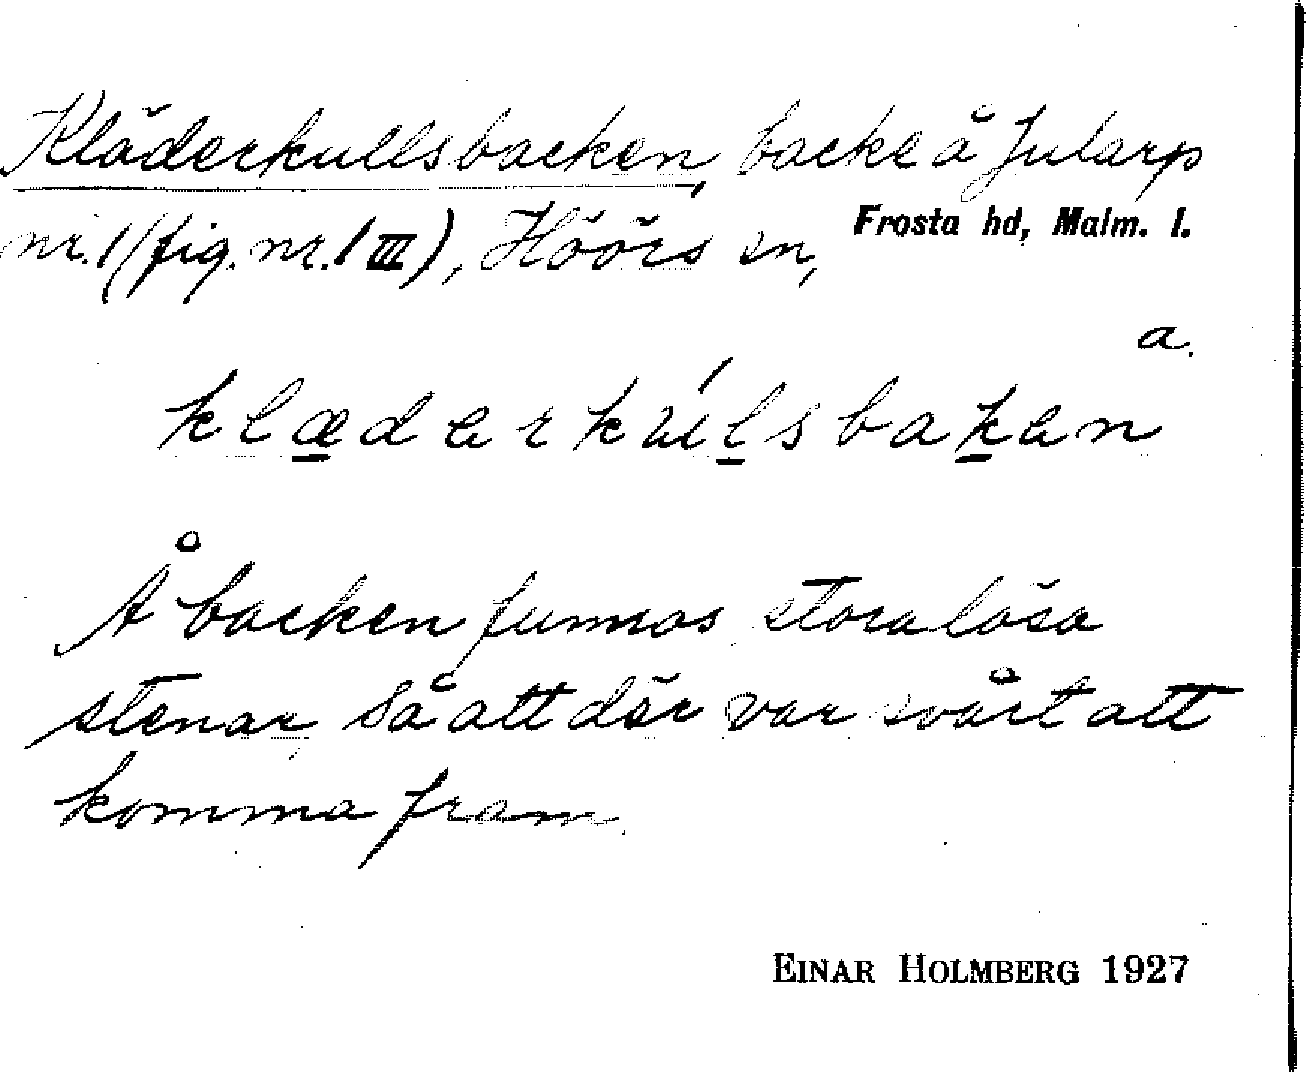 Kläderkullsbacken, backe å Jularp
nr. 1 (fig. nr. 1 III), Höörs sn, Frosta hd, Malm. l.
a.
klæderkúlsbaken
Å backen funnos stora lösa
stenar, så att där var svårt att
komma fram.
EINAR HOLMBERG 1927